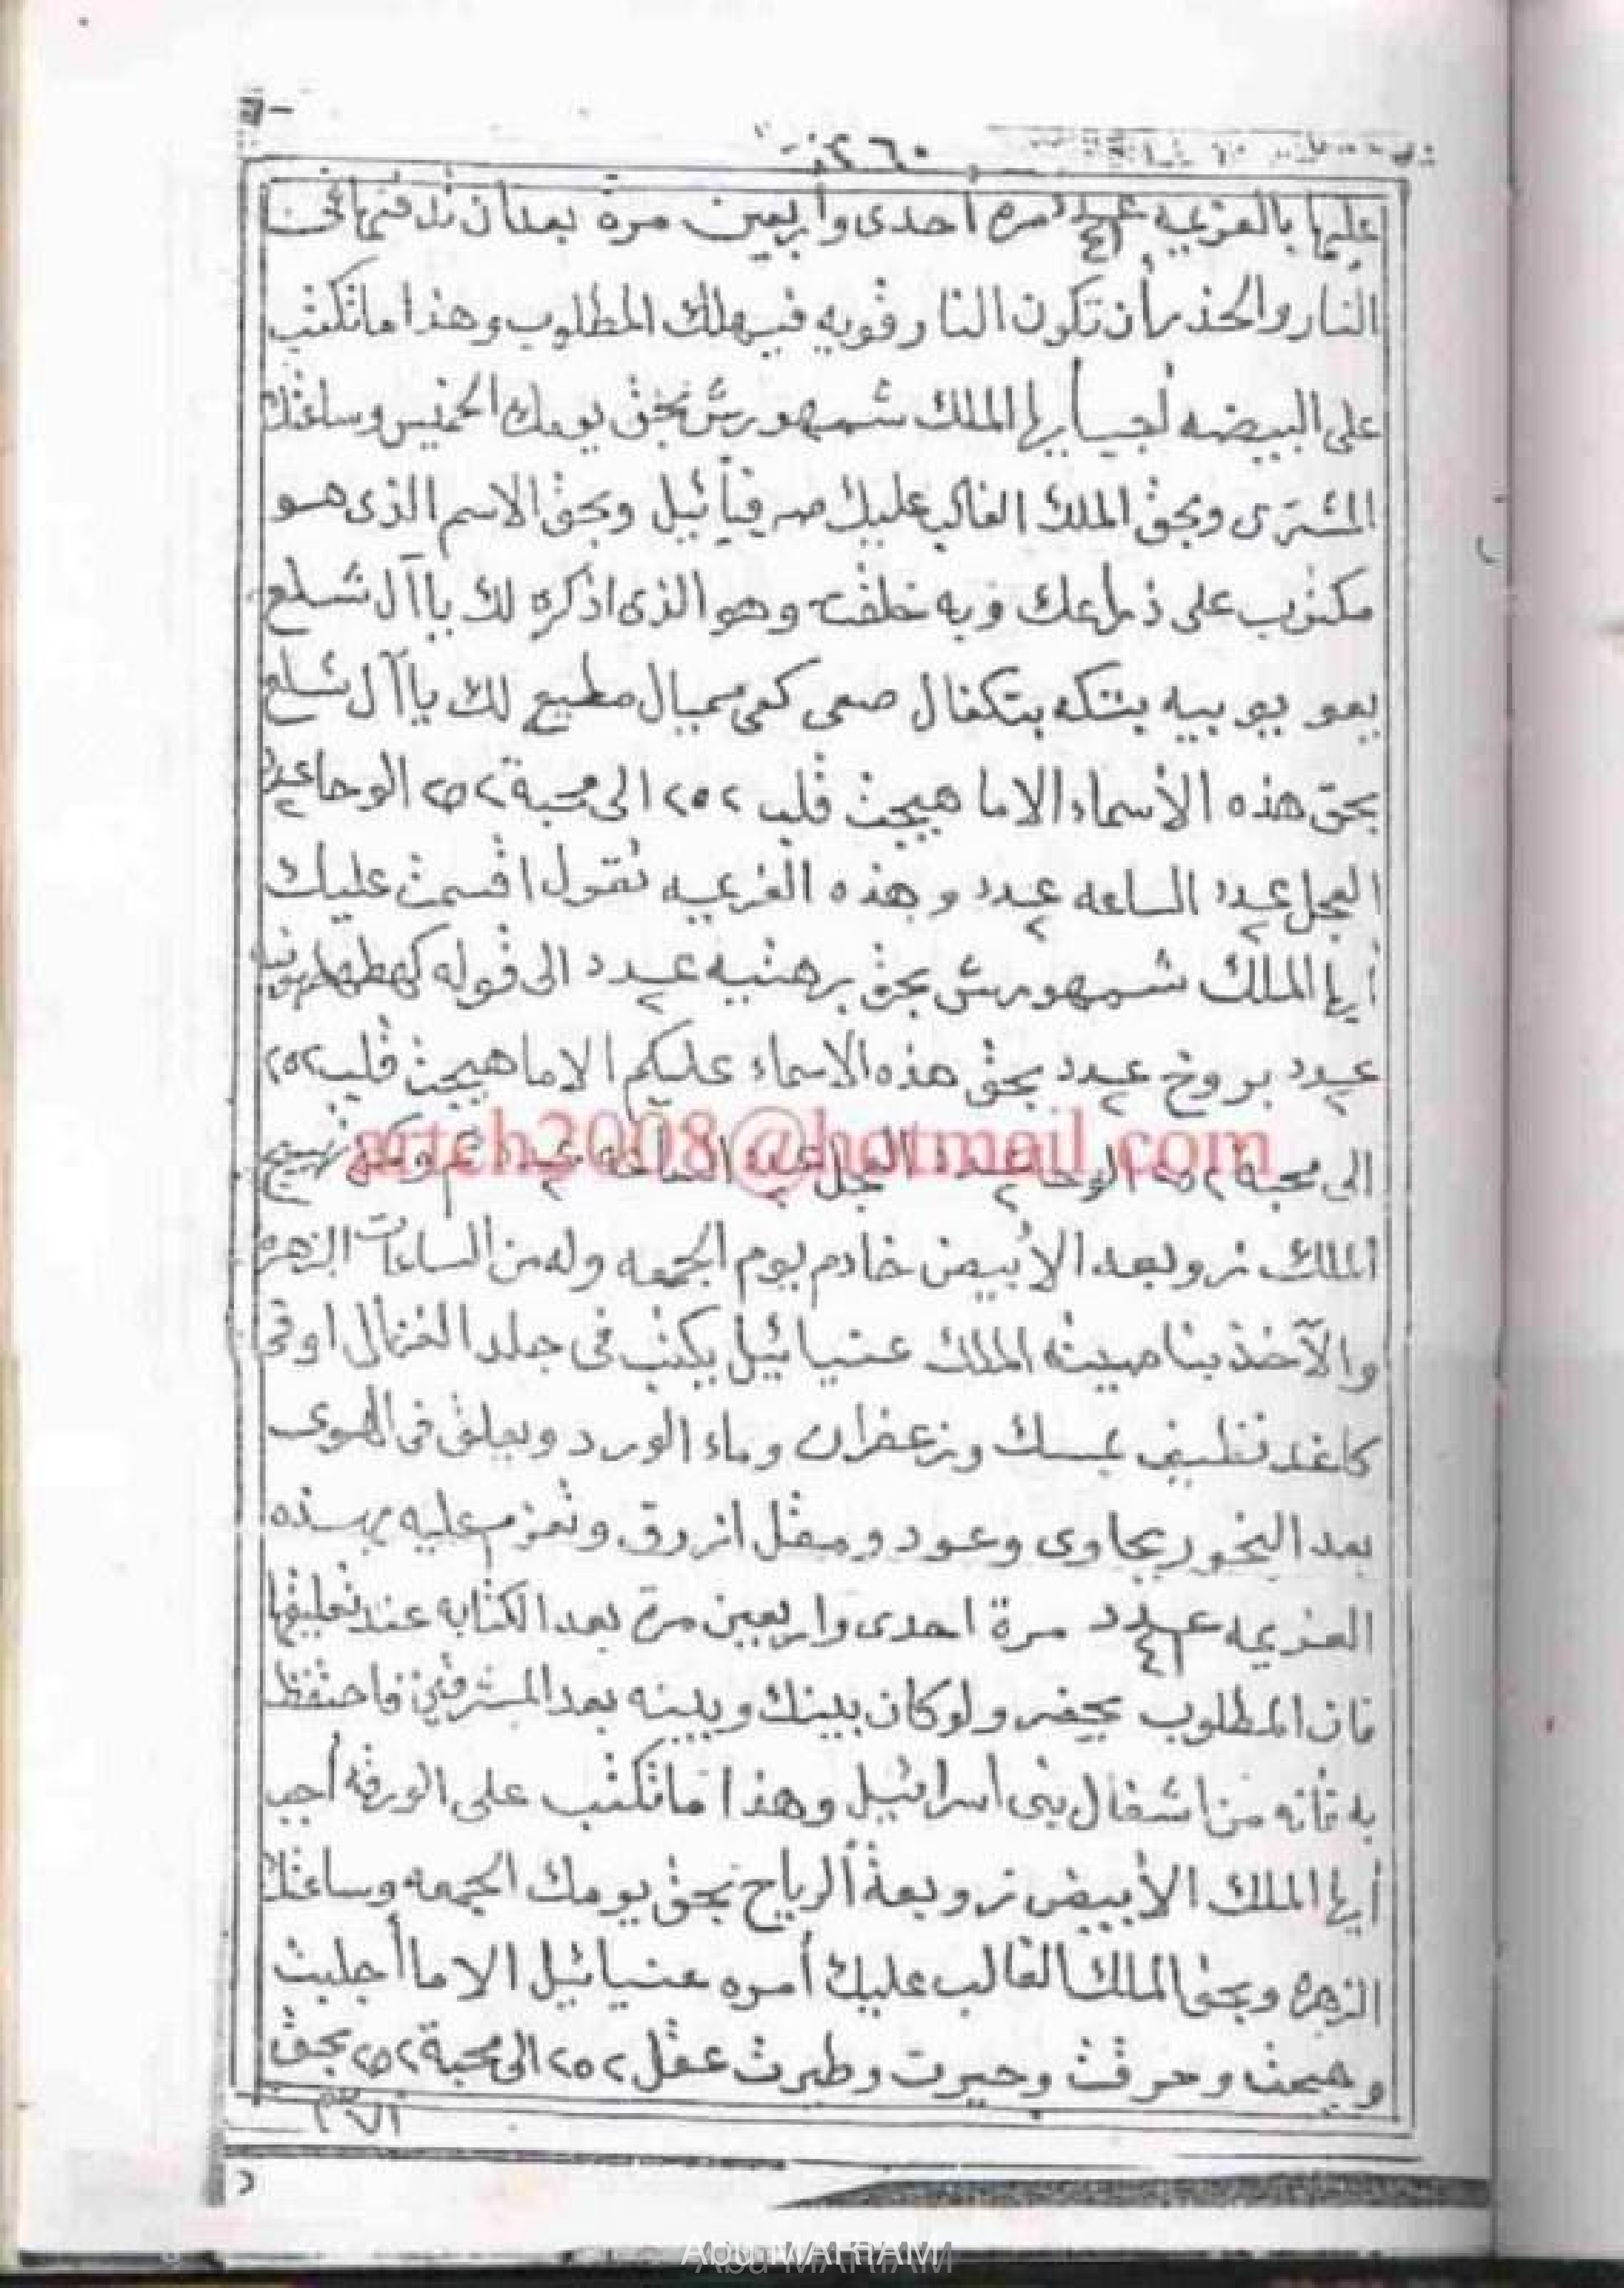 ٢٦٠
عليها بالعزيمه عدد ٤١ مره احدى وأربعين مرة بعد ان تدفنها في
النار والحذر أن تكون النار قويه فيهلك المطلوب وهذا ما تكتب
على البيضه أجب أيها الملك شمهورش بحق يومك الخميس وساعتك
المشترى وبحق الملك الغالب عليك صرفيائيل وبحق الاسم الذى هو
مكتوب على ذراعك وبه خلقت وهو الذى اذكره لك يا آل شلع
يعو يوبيه بتكه بتكفال صعى كعى مميال مطيع لك يا آل شلع
بحق هذه الأسماء الا ما هيجت قلب ٢٥٢ الى محبة ٢٥٢ الوحا عدد ٢
العجل عدد ٢ الساعه عدد ٢ وهذه العزيمه تقول اقسمت عليك
أيها الملك شمهورش بحق برهتيه عدد ٢ الى قوله كهطهطهونيه
عدد ٢ بروخ عدد ٢ بحق هذه الاسماء عليكم الا ما هيجت قلب ٢٥٢
الى محبة ٢٥٢ الوحا عدد ٢ العجل عدد ٢ الساعه عدد ٢ تهييج
artch2008@hotmail.com
الملك زوبعه الأبيض خادم يوم الجمعه وله من الساعات الزهره
والآخذ بناصيته الملك عنيائيل يكتب فى جلد الغزال او فى
كاغد نظيف بمسك وزعفران وماء الورد ويعلق فى الهوى
بعد البخور بجاوى وعود ومقل ازرق وتعزم عليه بهذه
العزيمه عدد ٤١ مرة احدى واربعين مرة بعد الكتابه عند تعليقها
فان المطلوب يحضر ولو كان بينك وبينه بعد المشرقين فاحتفظ
به فانه من اشغال بنى اسرائيل وهذا ما تكتب على الورقه أجب
أيها الملك الأبيض زوبعة ألرياح بحق يومك الجمعه وساعتك
الزهره وبحق الملك الغالب عليك أمره عنيائيل الا ما أجلبت
وهيجت وحرقت وحيرت وطيرت عقل ٢٥٢ الى محبة ٢٥٢ بحق
Abu MARIAM